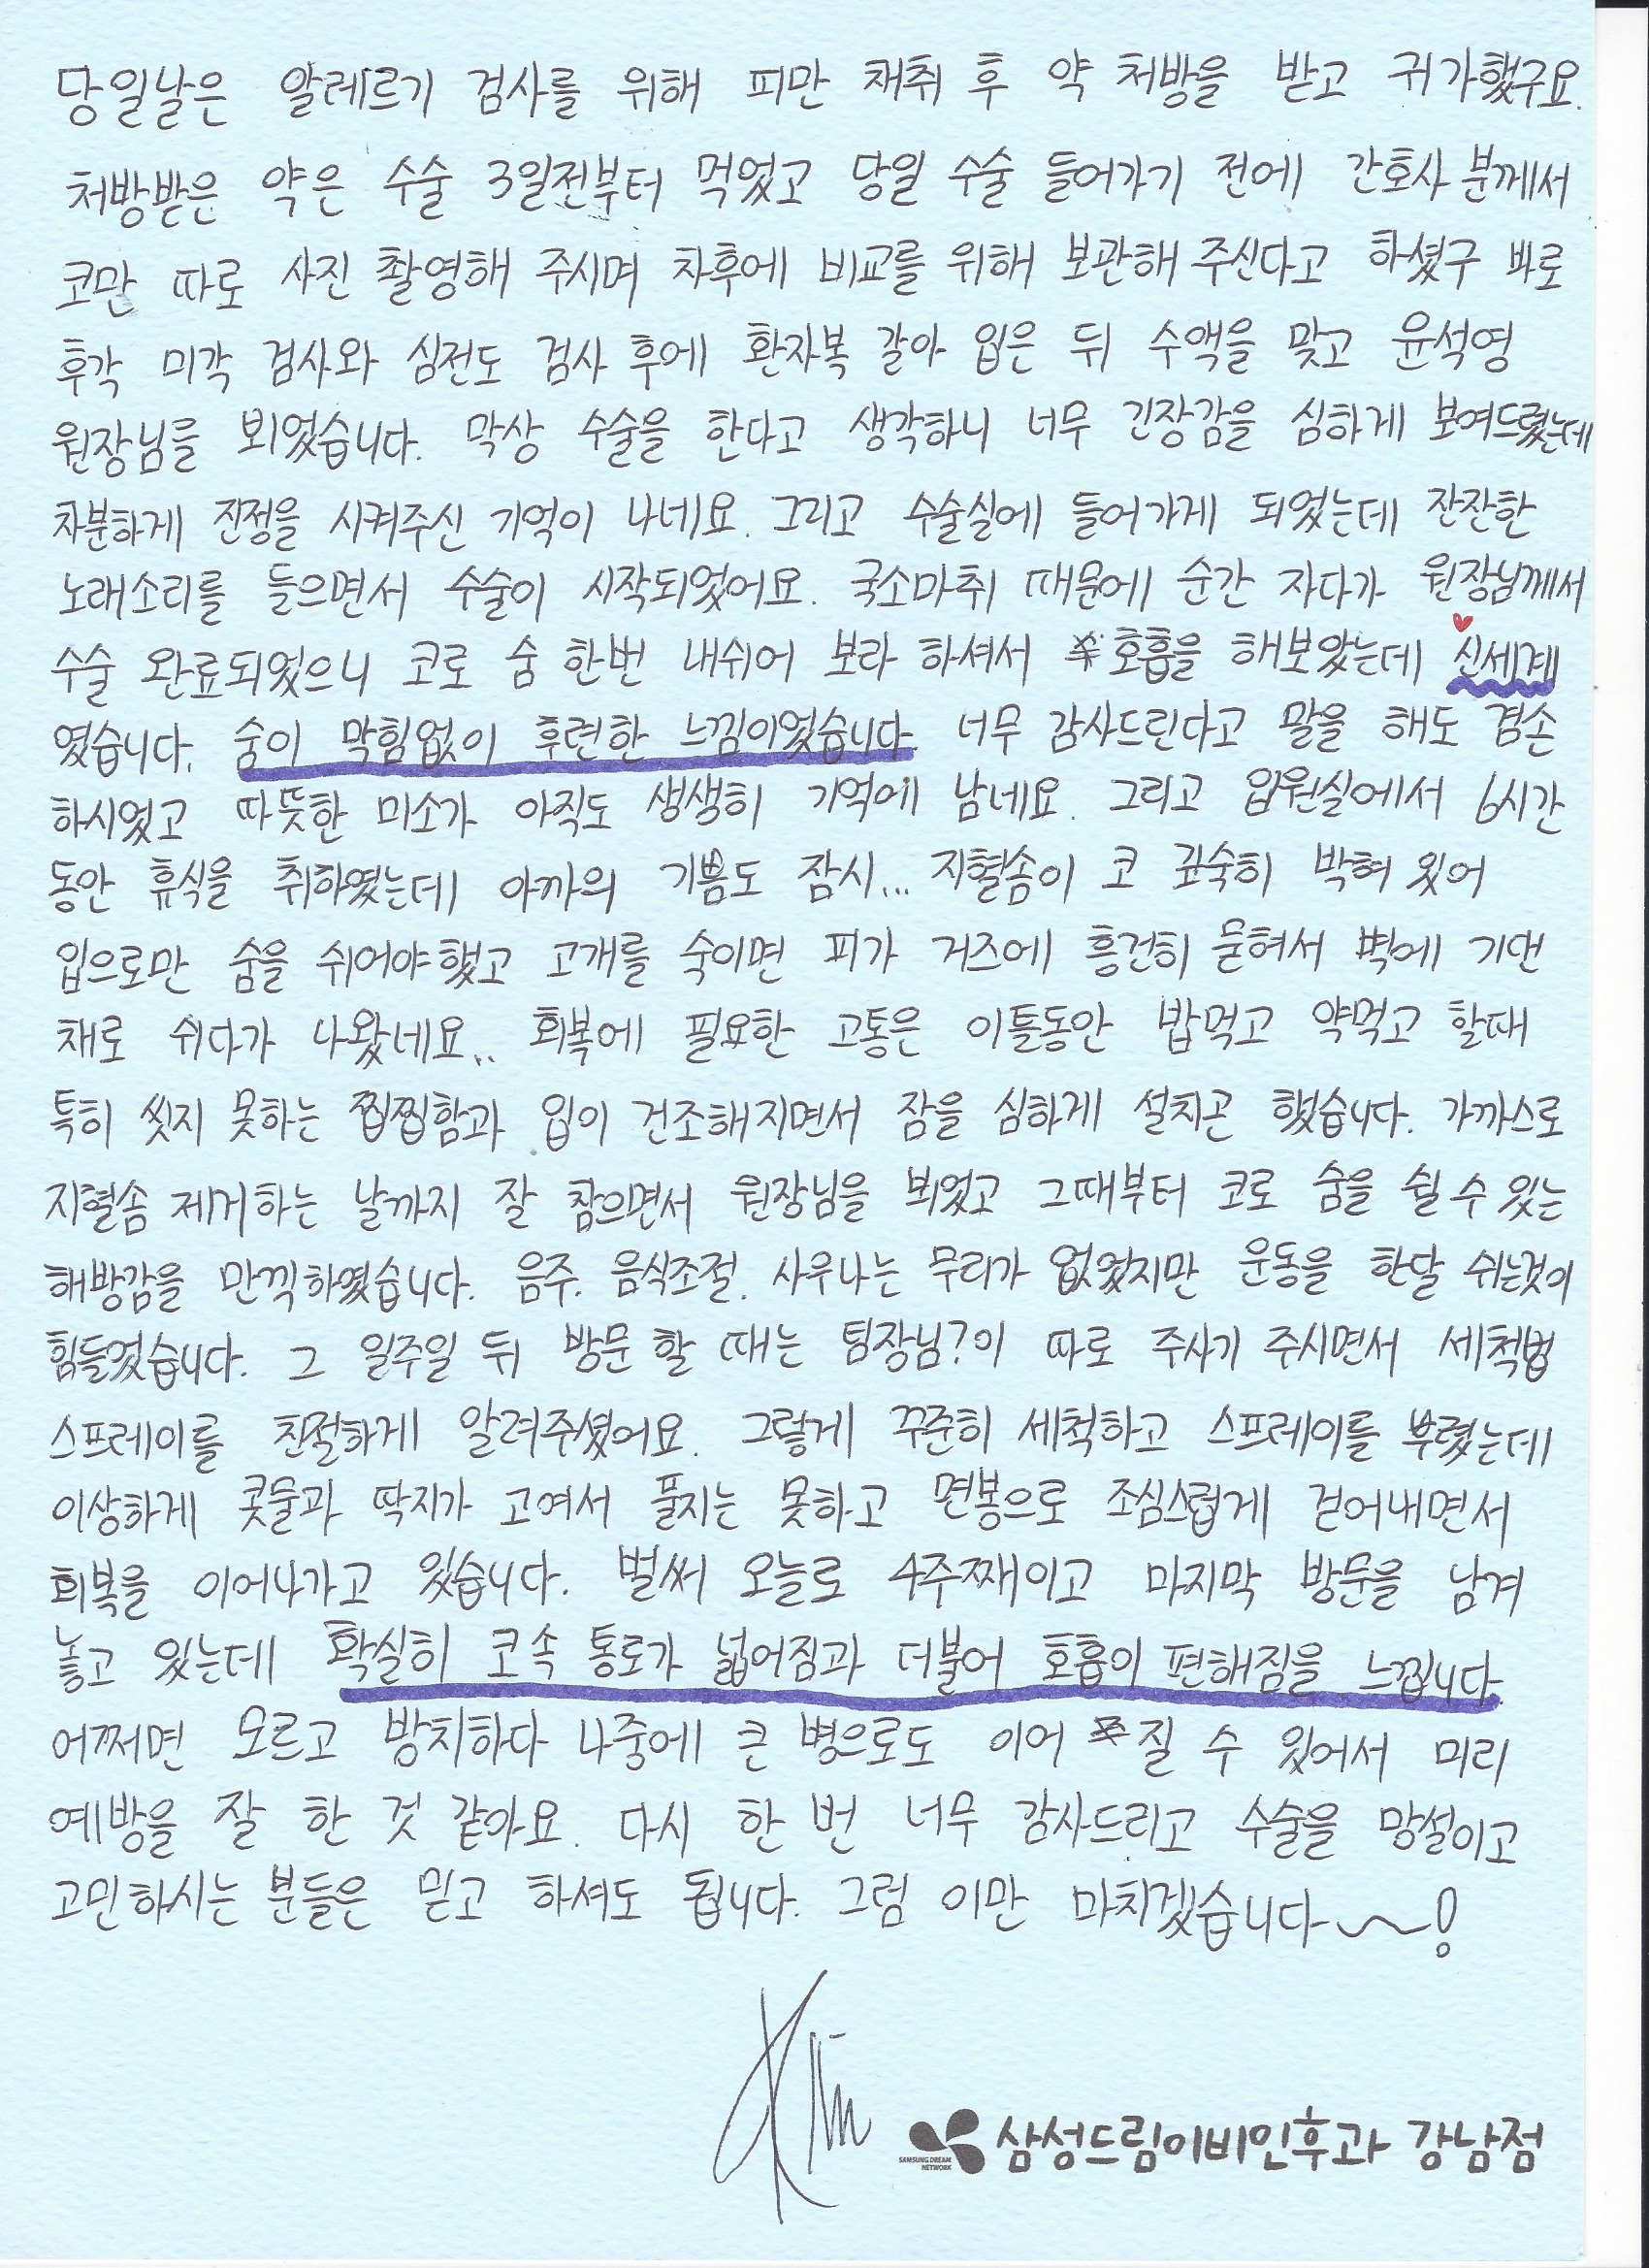 당일날은 알레르기 검사를 위해 피만 채취 후 약 처방을 받고 귀가했구요.
처방받은 약은 수술 3일전부터 먹었고 당일 수술 들어가기 전에 간호사 분께서
코만 따로 사진 촬영해 주시며 차후에 비교를 위해 보관해 주신다고 하셨구 바로
후각 미각 검사와 심전도 검사 후에 환자복 갈아 입은 뒤 수액을 맞고 윤석영
원장님를 뵈었습니다. 막상 수술을 한다고 생각하니 너무 긴장감을 심하게 보여드렸는데
차분하게 진정을 시켜주신 기억이 나네요. 그리고 수술실에 들어가게 되었는데 잔잔한
노래소리를 들으면서 수술이 시작되었어요. 국소마취 때문에 순간 자다가 원장님께서
수술 완료되었으니 코로 숨 한번 내쉬어 보라 하셔서 호흡을 해보았는데 신세계
였습니다. 숨이 막힘없이 후련한 느낌이었습니다. 너무 감사드린다고 말을 해도 겸손
하시었고 따뜻한 미소가 아직도 생생히 기억에 남네요. 그리고 입원실에서 6시간
동안 휴식을 취하였는데 아까의 기쁨도 잠시... 지혈솜이 코 깊숙히 박혀 있어
입으로만 숨을 쉬어야했고 고개를 숙이면 피가 거즈에 흥건히 묻혀서 벽에 기댄
채로 쉬다가 나왔네요.. 회복에 필요한 고통은 이틀동안 밥먹고 약먹고 할때
특히 씻지 못하는 찝찝함과 입이 건조해지면서 잠을 심하게 설치곤 했습니다. 가까스로
지혈솜 제거하는 날까지 잘 참으면서 원장님을 뵈었고 그때부터 코로 숨을 쉴 수 있는
해방감을 만끽하였습니다. 음주. 음식조절. 사우나는 무리가 없었지만 운동을 한달 쉬는것이
힘들었습니다. 그 일주일 뒤 방문 할 때는 팀장님?이 따로 주사기 주시면서 세척법
스프레이를 친절하게 알려주셨어요. 그렇게 꾸준히 세척하고 스프레이를 뿌렸는데
이상하게 콧물과 딱지가 고여서 풀지는 못하고 면봉으로 조심스럽게 걷어내면서
회복을 이어나가고 있습니다. 벌써 오늘로 4주째이고 마지막 방문을 남겨
놓고 있는데 확실히 코속 통로가 넓어짐과 더불어 호흡이 편해짐을 느낍니다
어쩌면 모르고 방치하다 나중에 큰 병으로도 이어 질 수 있어서 미리
예방을 잘 한 것 같아요. 다시 한 번 너무 감사드리고 수술을 망설이고
고민하시는 분들은 믿고 하셔도 됩니다. 그럼 이만 마치겠습니다~!
Kim
SAMSUNG DREAM NETWORK 삼성드림이비인후과 강남점